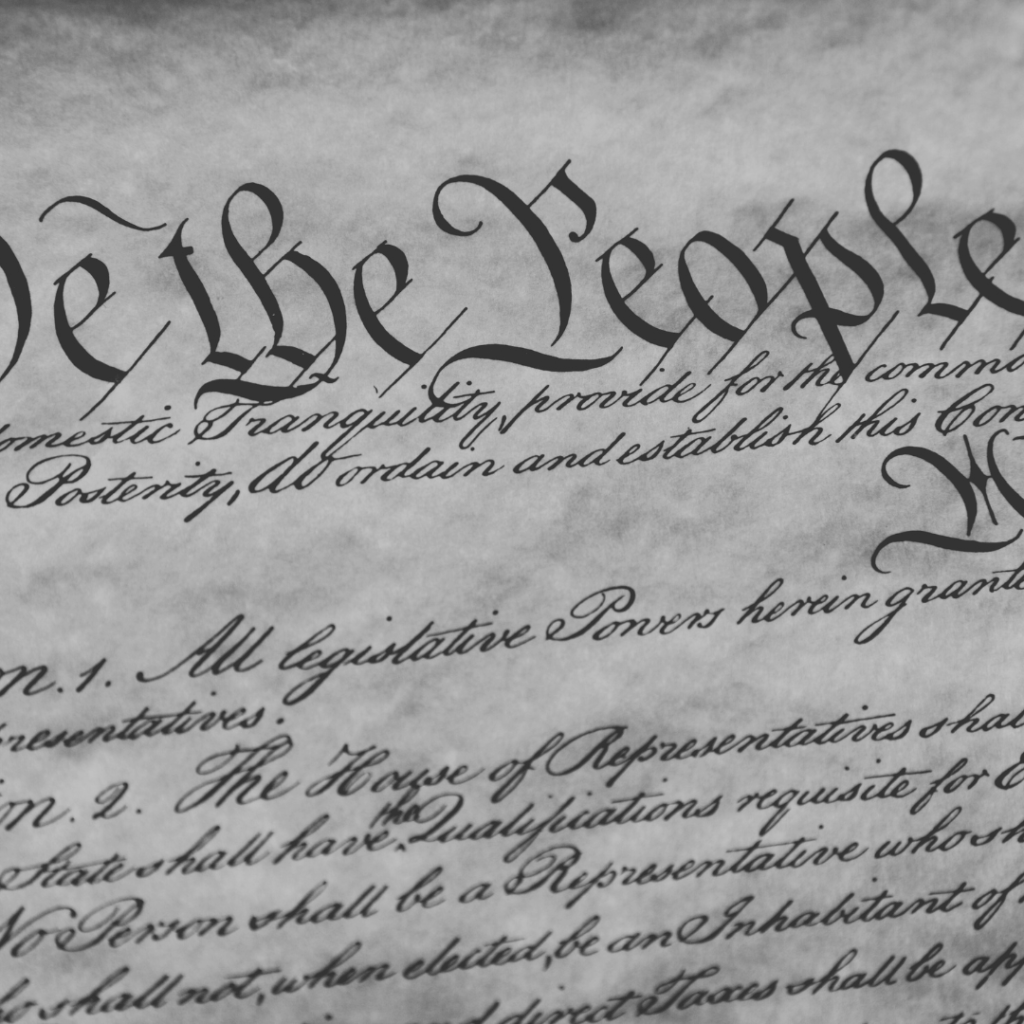 We the People
omestic Tranquility, provide for the commo
Posterity, do ordain and establish this Con
n. 1. All legislative Powers herein grante
presentatives.
on. 2. The House of Representatives shal
the
State shall have Qualifications requisite for E
No Person shall be a Representative who sh
ho shall not, when elected, be an Inhabitant of
and direct Taxes shall be app
to th